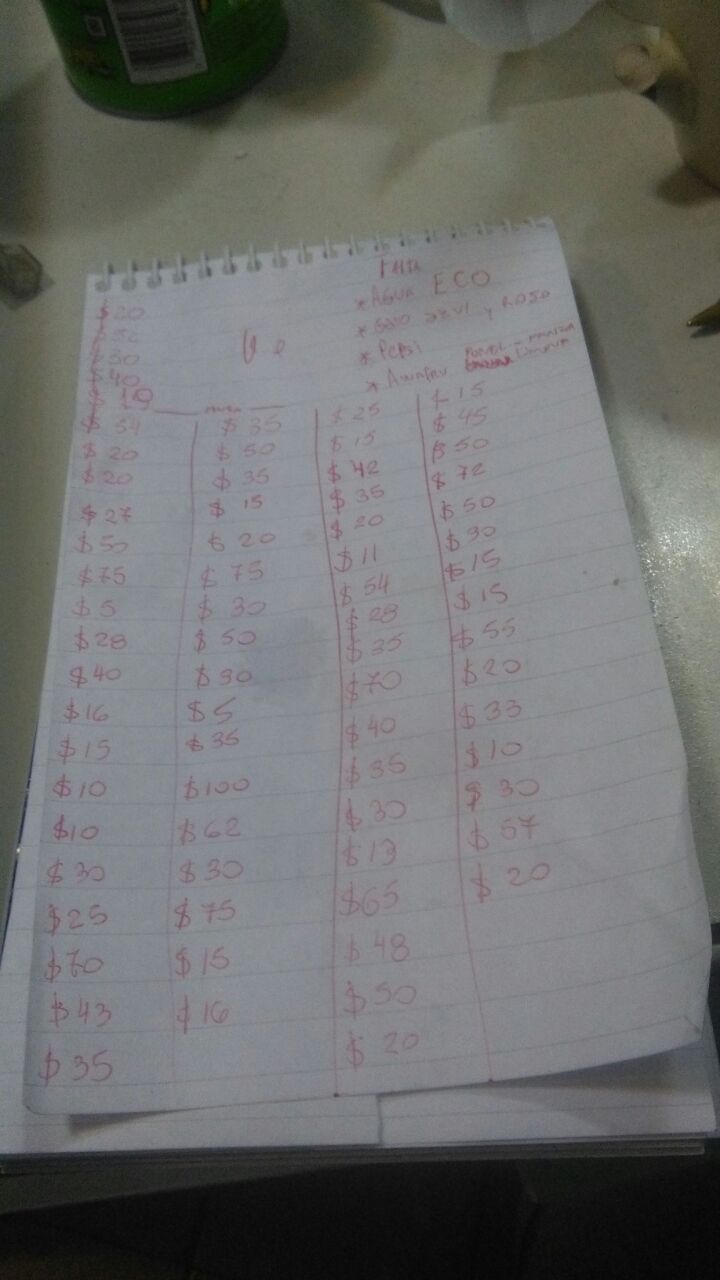 * AGUA ECO
* PEPSI
$20
$30
$40
$19
$54
$20
$20
$27
$50
$75
$5
$28
$40
$16
$15
$10
$10
$30
$25
$70
$43
$35
$35
$50
$35
$15
$20
$75
$30
$50
$30
$5
$35
$100
$62
$30
$75
$15
$16
$25
$15
$42
$35
$20
$11
$54
$28
$35
$70
$40
$35
$30
$13
$65
$48
$50
$20
$15
$45
$50
$72
$50
$30
$15
$15
$55
$20
$33
$10
$30
$57
$20